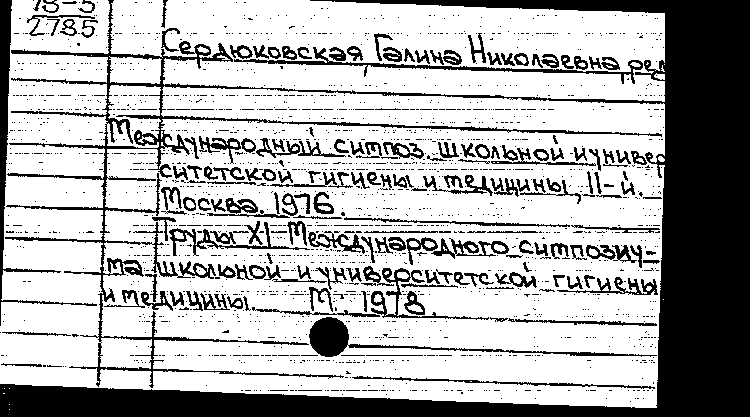 78-5
2785
Сердюковская, Галина Николаевна, ред
Международный симпоз. школьной и универ
ситетской гигиены и медицины, 11-й.
Москва. 1976.
Труды XI Международного симпозиу-
ма школьной и университетской гигиены
и медицины М.: 1978.